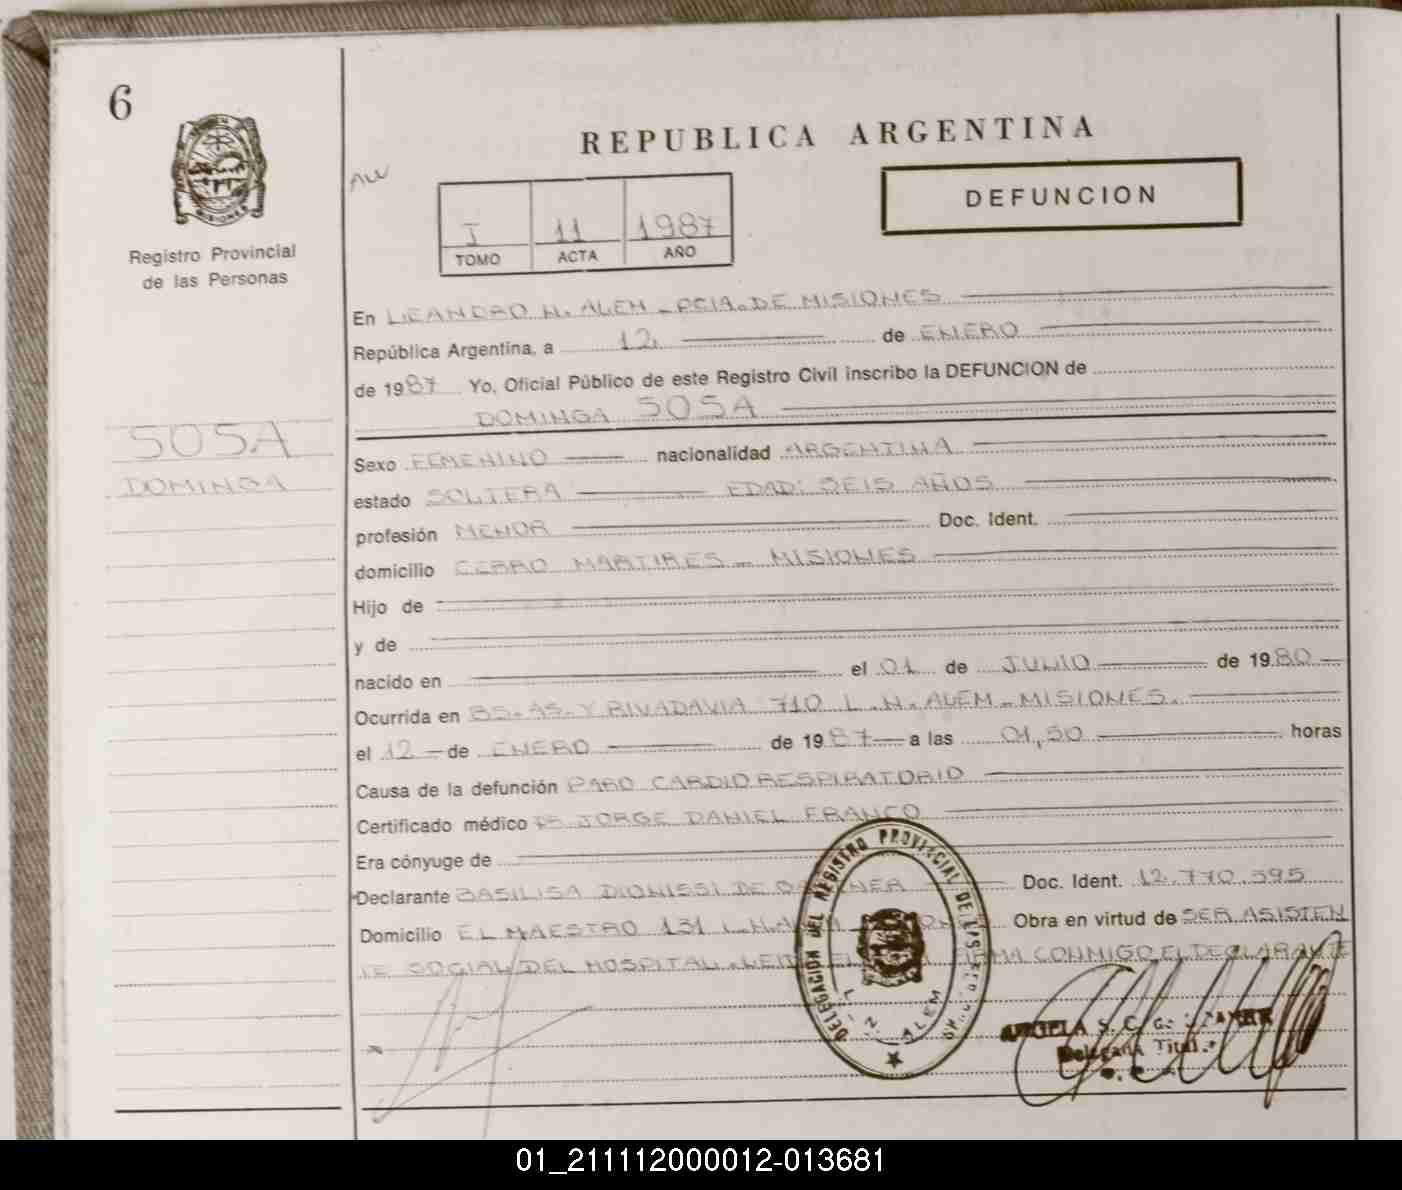 6
REPUBLICA ARGENTINA
DEFUNCION
I 11 1987
TOMO ACTA AÑO
MISIONES
Registro Provincial
de las Personas
En LEANDRO N. ALEM - PCIA. DE MISIONES
República Argentina, a 12 de ENERO
de 1987 Yo, Oficial Público de este Registro Civil inscribo la DEFUNCION de
DOMINGA SOSA
SOSA
DOMINGA
Sexo FEMENINO nacionalidad ARGENTINA
estado SOLTERA EDAD: SEIS AÑOS
profesión MENOR Doc. Ident.
domicilio CERRO MARTIRES - MISIONES
Hijo de
y de
nacido en el 01 de JUNIO de 1980
Ocurrida en BS. AS. Y RIVADAVIA 710 L. N. ALEM - MISIONES.
el 12 de ENERO de 1987 a las 01,50 horas
Causa de la defunción PARO CARDIO RESPIRATORIO
Certificado médico DR JORGE DANIEL FRANCO
Era cónyuge de
Declarante BASILISA DIONISSI DE Doc. Ident. 12.770.395
Domicilio EL MAESTRO 131 L.N. Obra en virtud de SER ASISTEN
TE SOCIAL DEL HOSPITAL. FIRMA CONMIGO EL DECLARANTE
DELEGACION DEL REGISTRO PROVINCIAL DE
L. N. ALEM
ANGELA S. C. G.
Delegada Titul.
01_211112000012-013681